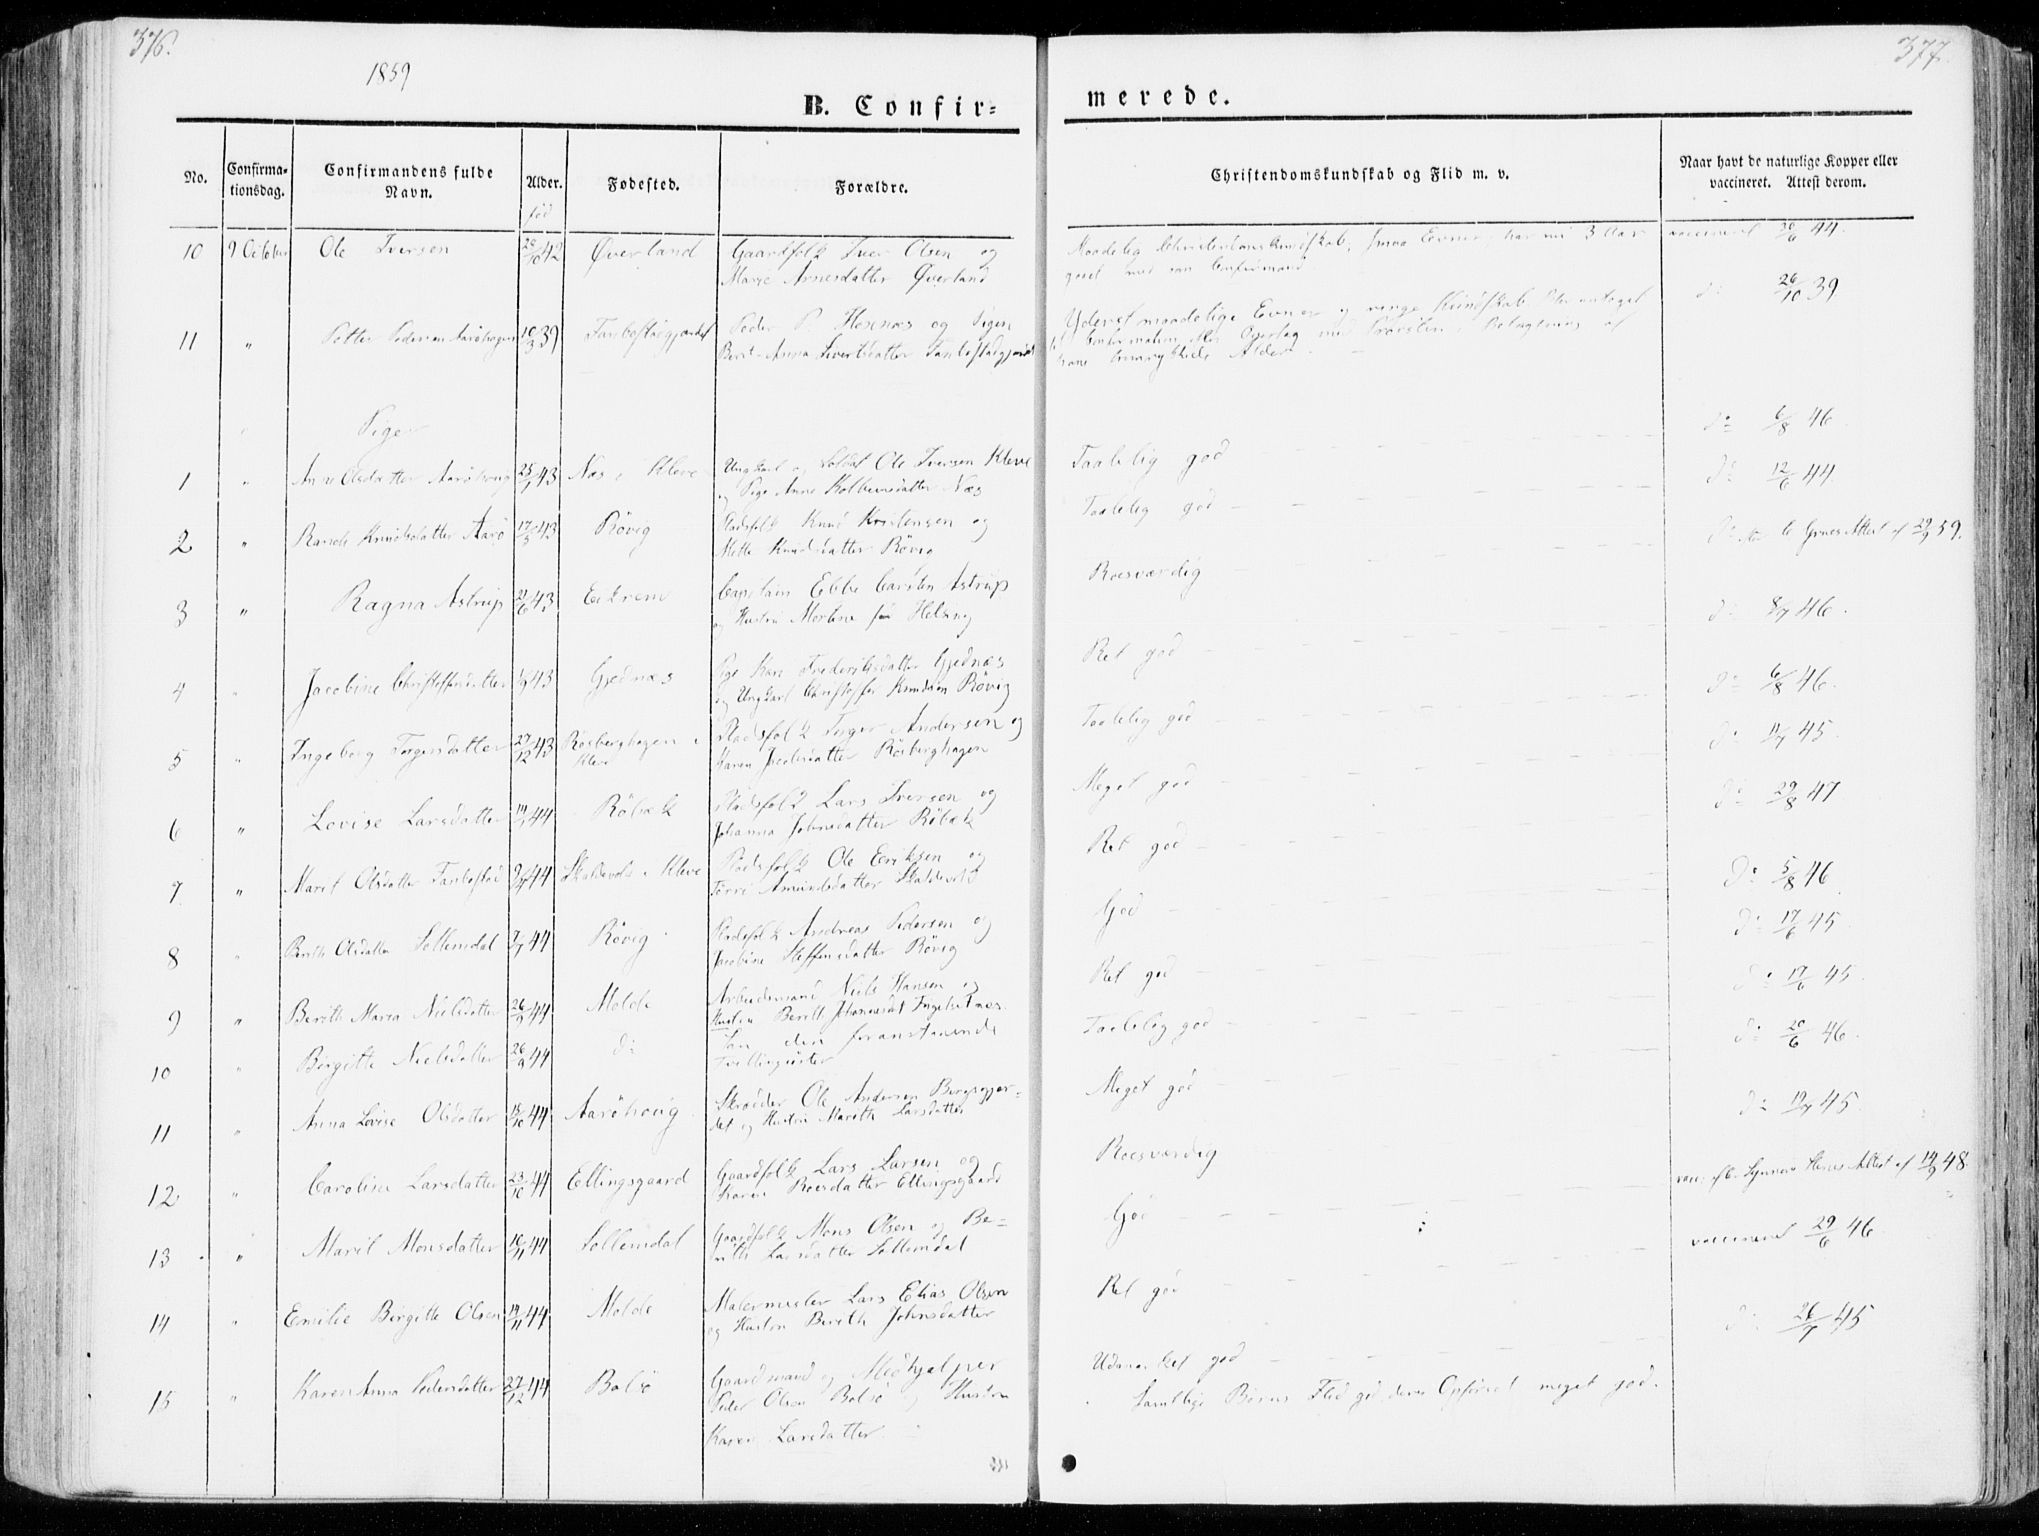 376.
377.
1859
B. Confir=
merede.
No.
Confirma=
tionsdag.
Confirmandens fulde
Navn.
Alder.
Fødested.
Forældre.
Christendomskundskab og Flid m. v.
Naar havt de naturlige Kopper eller
vaccineret. Attest derom.
fød
10 9 October Ole Iversen 28/10 42 Øverland Gaardfolk Iver Olsen og
Marie Arnesdatter Øverland
Maadelig Christendomskundskab, Evner, har nu 3 Aar
vaccineret 30/6 44.
11 " Petter Pedersen Aaröhougen 10/3 39 Fanbostadgjerdet Peder P. Hosenæs og Pigen
Berit-Anna Sivertsdatter Fanbostadgjerdet
Yderst maadelige Evner og ringe Kundskab.
Alder
d: 26/10 39.
Piger
1 " Anne Olsdatter Aaröhoug 25/1 43 Næs i Kleve Ungkarl og Soldat Ole Iversen Kleve
og Pige Anne Kolbeinsdatter Næs
Taalelig god
d: 6/8 46
2 " Randi Knudsdatter Aarö 17/5 43 Rövig Pladsfolk Knud Kristensen og
Mette Knudsdatter Rövig
Taalelig god
d: 12/6 44.
3 " Ragna Astrup 2/6 43 Eikrem Capitain Ebbe Carsten Astrup
og Hustru Mortine
Roesværdig
d: Attest af 29/9 59.
4 " Jacobine Christoffersdatter 1/9 43 Gjednæs Pige Kari Frederiksdatter Gjednæs
og Ungkarl Christoffer Knudsen Rövig
Ret god
d: 8/7 46.
5 " Ingeborg Torgersdatter 27/12 43 Rösberghagen i
Kleve
Pladsfolk Torger Andersen og
Karen Jacobsdatter Rösberghagen
Taalelig god
d: 6/8 46.
6 " Lovise Larsdatter 19/1 44 Röbæk Pladsfolk Lars Iversen og
Johanna Johnsdatter Röbæk
Meget god
d: 11/7 45.
7 " Marit Olsdatter Fanbostad 44 Skaldevold i Kleve Pladsfolk Ole Eriksen og
Amundsdatter Skaldevold
Ret god
d: 29/8 47
8 " Berith Olsdatter Sollemdal 7/7 44 Rövig Pladsfolk Andreas Pedersen og
Jacobine Steffensdatter Rövig
God
d: 5/8 46
9 " Berith Maria Nielsdatter 26/9 44 Molde Arbeidsmand Niels Hansen og
Hustru Berith
Ret god
d: 17/6 45.
10 " Birgitte Nielsdatter 26/9 44 d: den foranstaaende
Tvillingsöster
Taalelig god
d: 17/6 45
11 " Anna Lovise Olsdatter 18/10 44 Aaröhoug Skrædder Ole Andersen Bergsgjer=
det og Hustru Marith Larsdatter
Meget god
d: 20/6 46.
12 " Caroline Larsdatter 23/10 44 Ellingsgaard Gaardfolk Lars Larsen og
Karen Roesdatter Ellingsgaard
Roesværdig
d: 19/7 45.
13 " Marit Monsdatter 16/11 44 Sollemdal Gaardfolk Mons Olsen og Be=
rith Larsdatter Sollemdal
God
Attest af 19/9 48.
14 " Emilie Birgitte Olsen 19/11 44 Molde Malermester Lars Elias Olsen
og Hustru Berith Johnsdatter
Ret god
vaccineret 29/6 46.
15 " Karen Anna Pedersdatter 27/12 44 Bolsö Gaardmand og Medhjelper
Peder Olsen Bolsö og Hustru
Karen Larsdatter
Udmærket god
d: 26/7 45
Samtlige Börns Flid god, deres Opförsel meget god.